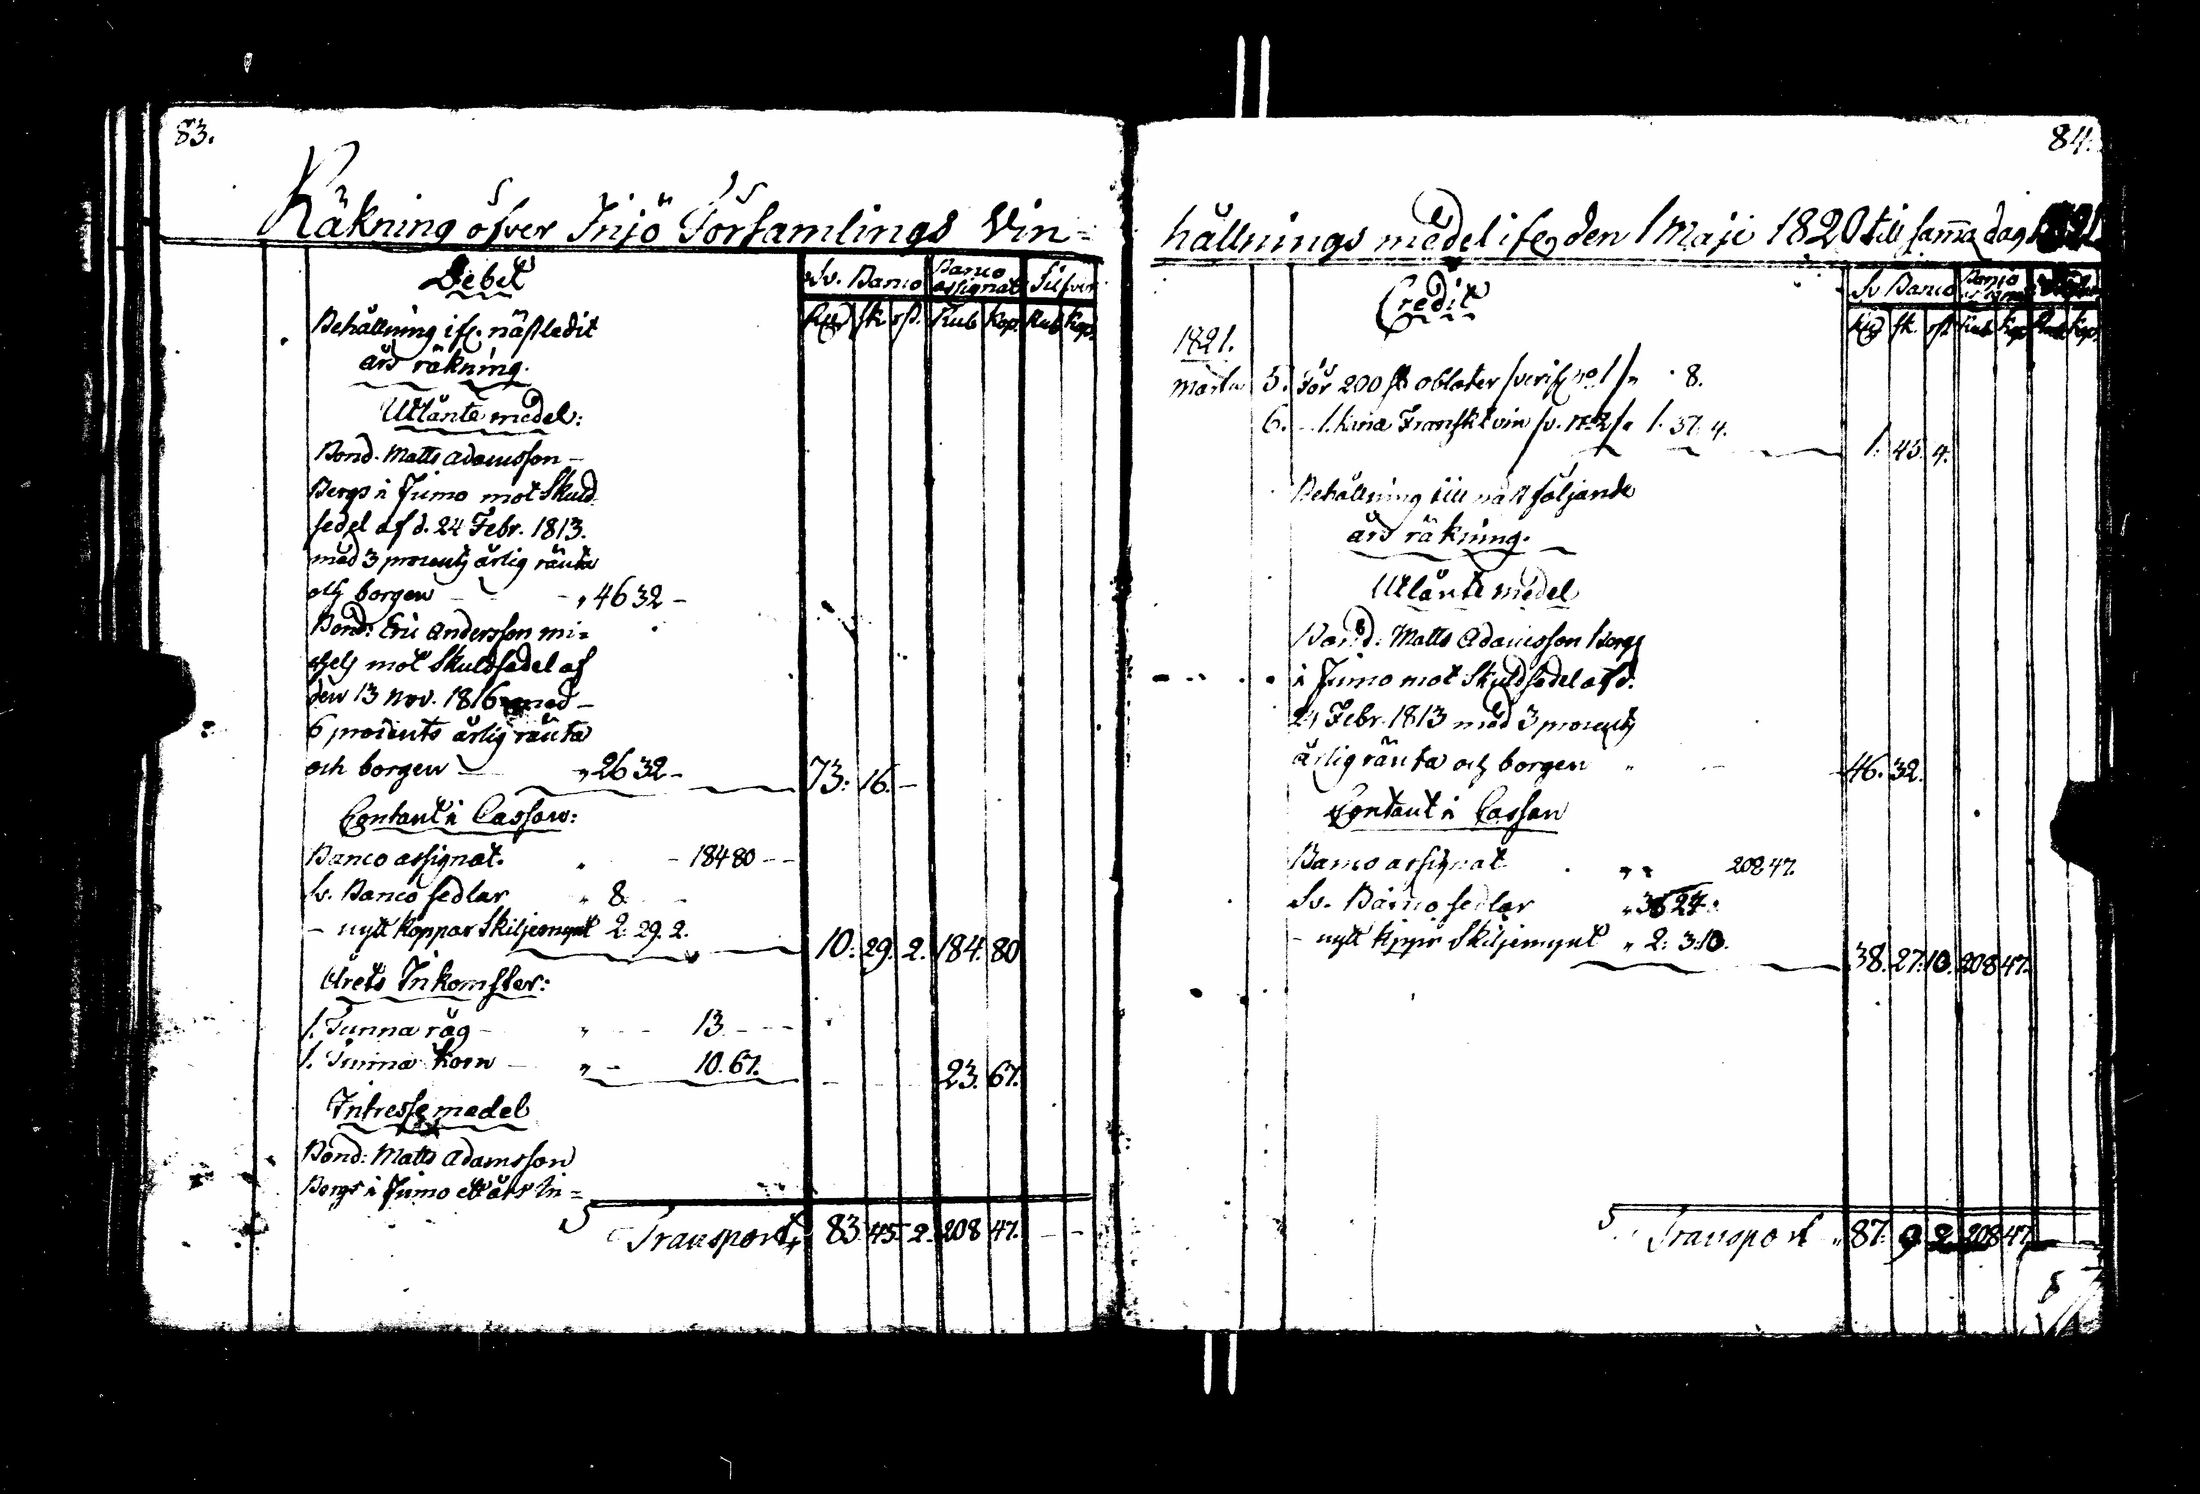 83.
Räkning öfver Iniö Församlings Vin=
Debet
Sv. Banco Banco assignat Silfver
Rd sk rst. Rub Kop. Rub Kop.
Behållning ifr. nästledit
års räkning.
Utlånte medel:
Bond. Matts Adamsson –
Bergs i Jumo mot Skuld
sedel af d. 24 Febr. 1813.
med 3 procents årlig ränta
och borgen – „ 46 32 –
Bond: Eric Andersson mi=
chels mot Skuldsedel af
den 13 Nov. 1816 med –
6 procents årlig ränta
och borgen – „ 26 32 – 73: 16. –
Contant i Cassan:
Banco assignat. „ – 184 80 – –
Sv. Banco sedlar „ 8.
– nytt koppar Skiljemynt 2. 29. 2. 10. 29. 2. 184. 80
Årets Inkomster:
1. Tunna råg – „ – – 13. – – –
1. Tunna korn – „ – 10. 67. 23. 67.
Intresse medel
Bond: Matts Adamsson
Bergs i Jumo ett års in=
Transport 83 45 2. 208 47. – –
84.
hållnings medel ifrån den 1 Maji 1820 till samma dag 1821
Credit
Sv Banco Banco
Rd sk. rst Rub Kop Rub Kop.
1821.
Martii 5. För 200 st oblater /verif no 1/ „ 8.
6. – 1. kna Franskt vin /v. no 2/ „ 1. 37. 4. 1. 45. 4.
Behållning till näst följande
års räkning.
Utlånte medel
Bond. Matts Adamsson Bergs
i Jumo mot Skuldsedel af d.
24 Febr. 1813 med 3 procents
årlig ränta och borgen „ – 46. 32.
Contant i Cassan
Banco assignat. „ „ 208 47.
Sv. Banco sedlar „ 36 24.
– nytt kppr Skiljemynt „ 2. 3. 10. 38. 27. 10. 208 47.
Transport „ 87. 9 2 208 47